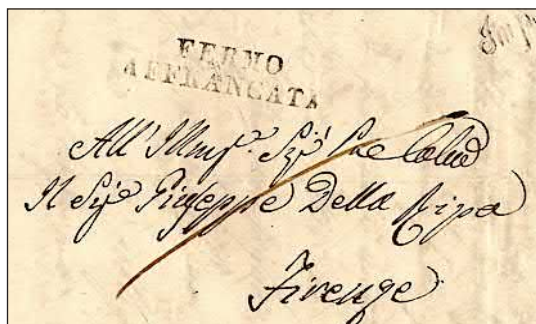 FERMO
AFFRANCATA
All' Illmo. Sigr.
Il Sigre Giuseppe Della Ripa
Firenze